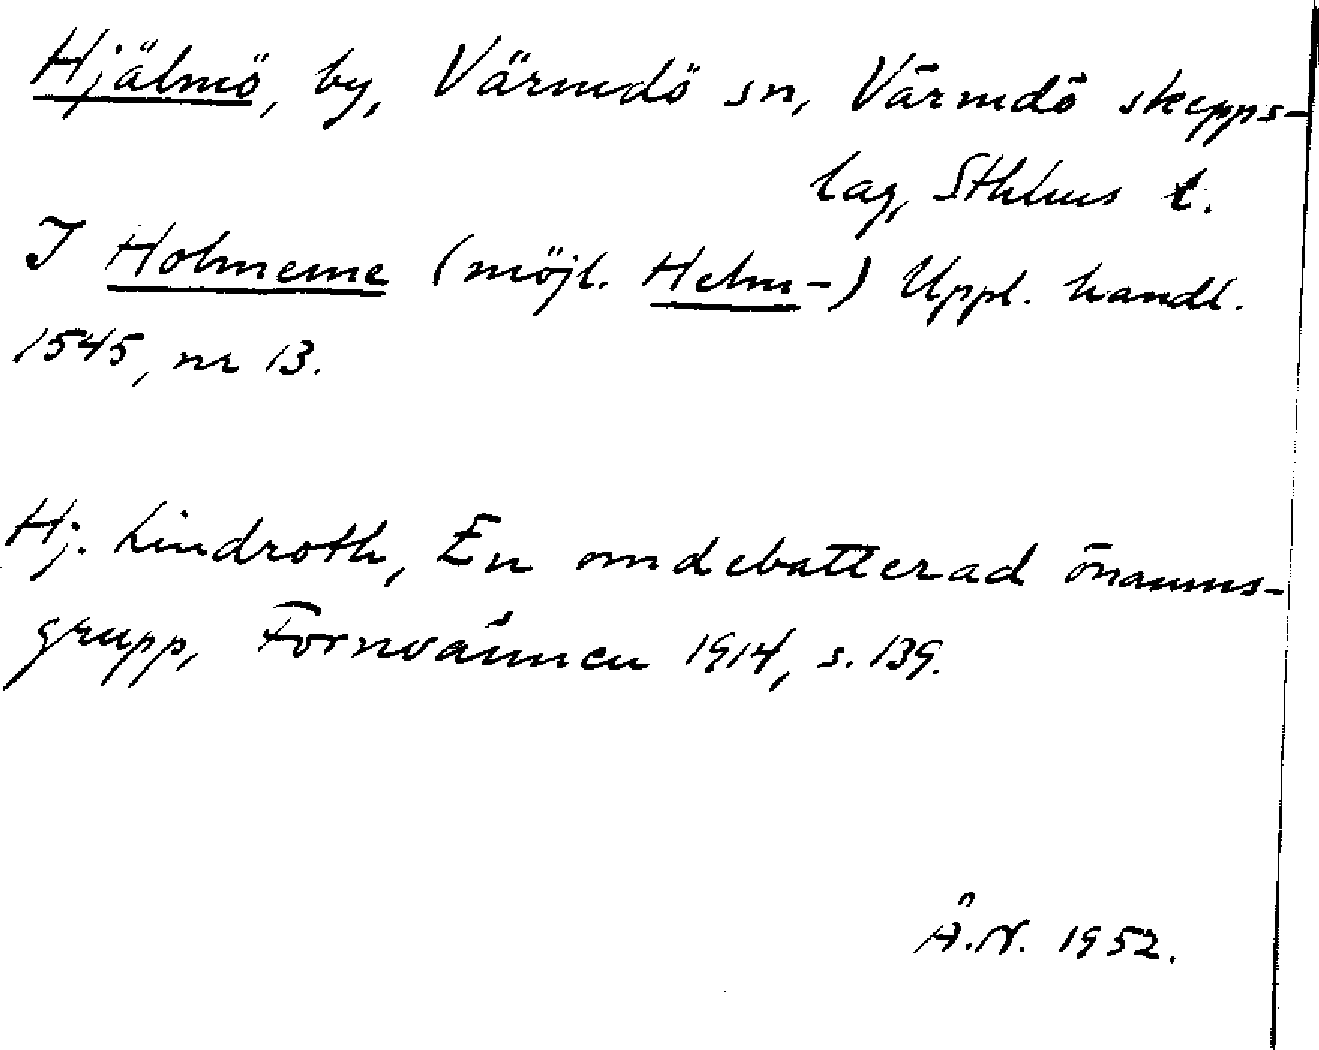 Hjälmö, by, Värmdö sn, Värmdö skepps-
lag, Sthlms l.
I Holmeme (möjl. Helm-) Uppl. handl.
1545, nr 13.
Hj. Lindroth, En omdebatterad önamns-
grupp, Fornvännen 1914, s. 139.
Å.N. 1952.